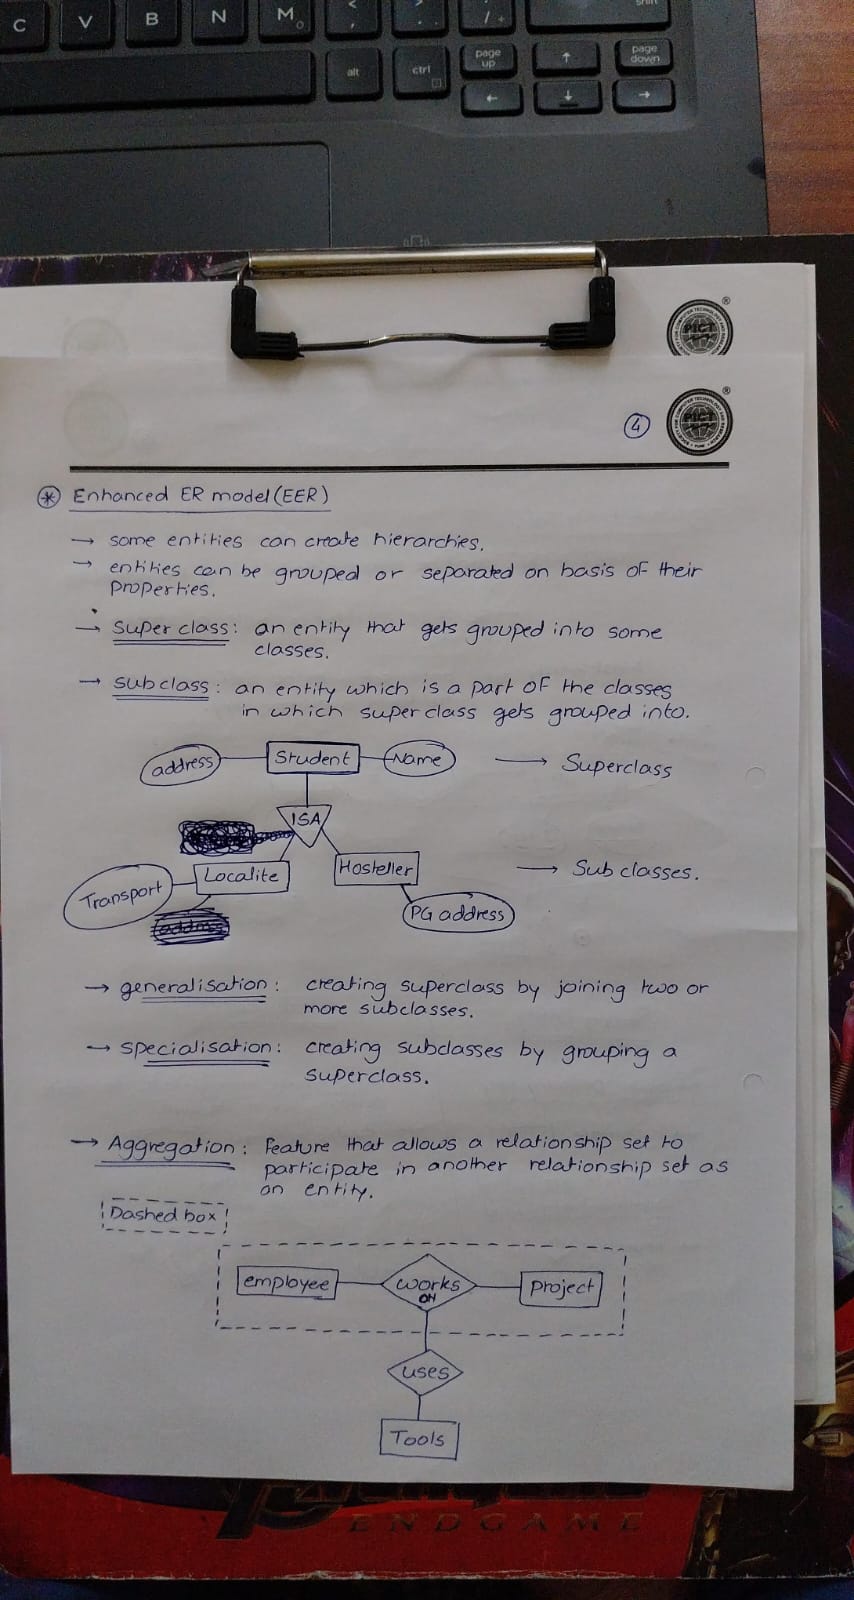 C V B N M
alt ctrl page up page down
shift
PICT
4
PICT
Enhanced ER model (EER)
→ some entities can create hierarchies.
→ entities can be grouped or separated on basis of their
properties.
→ Super class: an entity that gets grouped into some
classes.
→ subclass: an entity which is a part of the classes
in which superclass gets grouped into.
address Student Name → Superclass
ISA
Transport Localite Hosteller → Subclasses.
PG address
→ generalisation: creating superclass by joining two or
more subclasses.
→ specialisation: creating subclasses by grouping a
superclass.
→ Aggregation: Feature that allows a relationship set to
participate in another relationship set as
an entity.
Dashed box
employee works ON project
uses
Tools
ENDGAME